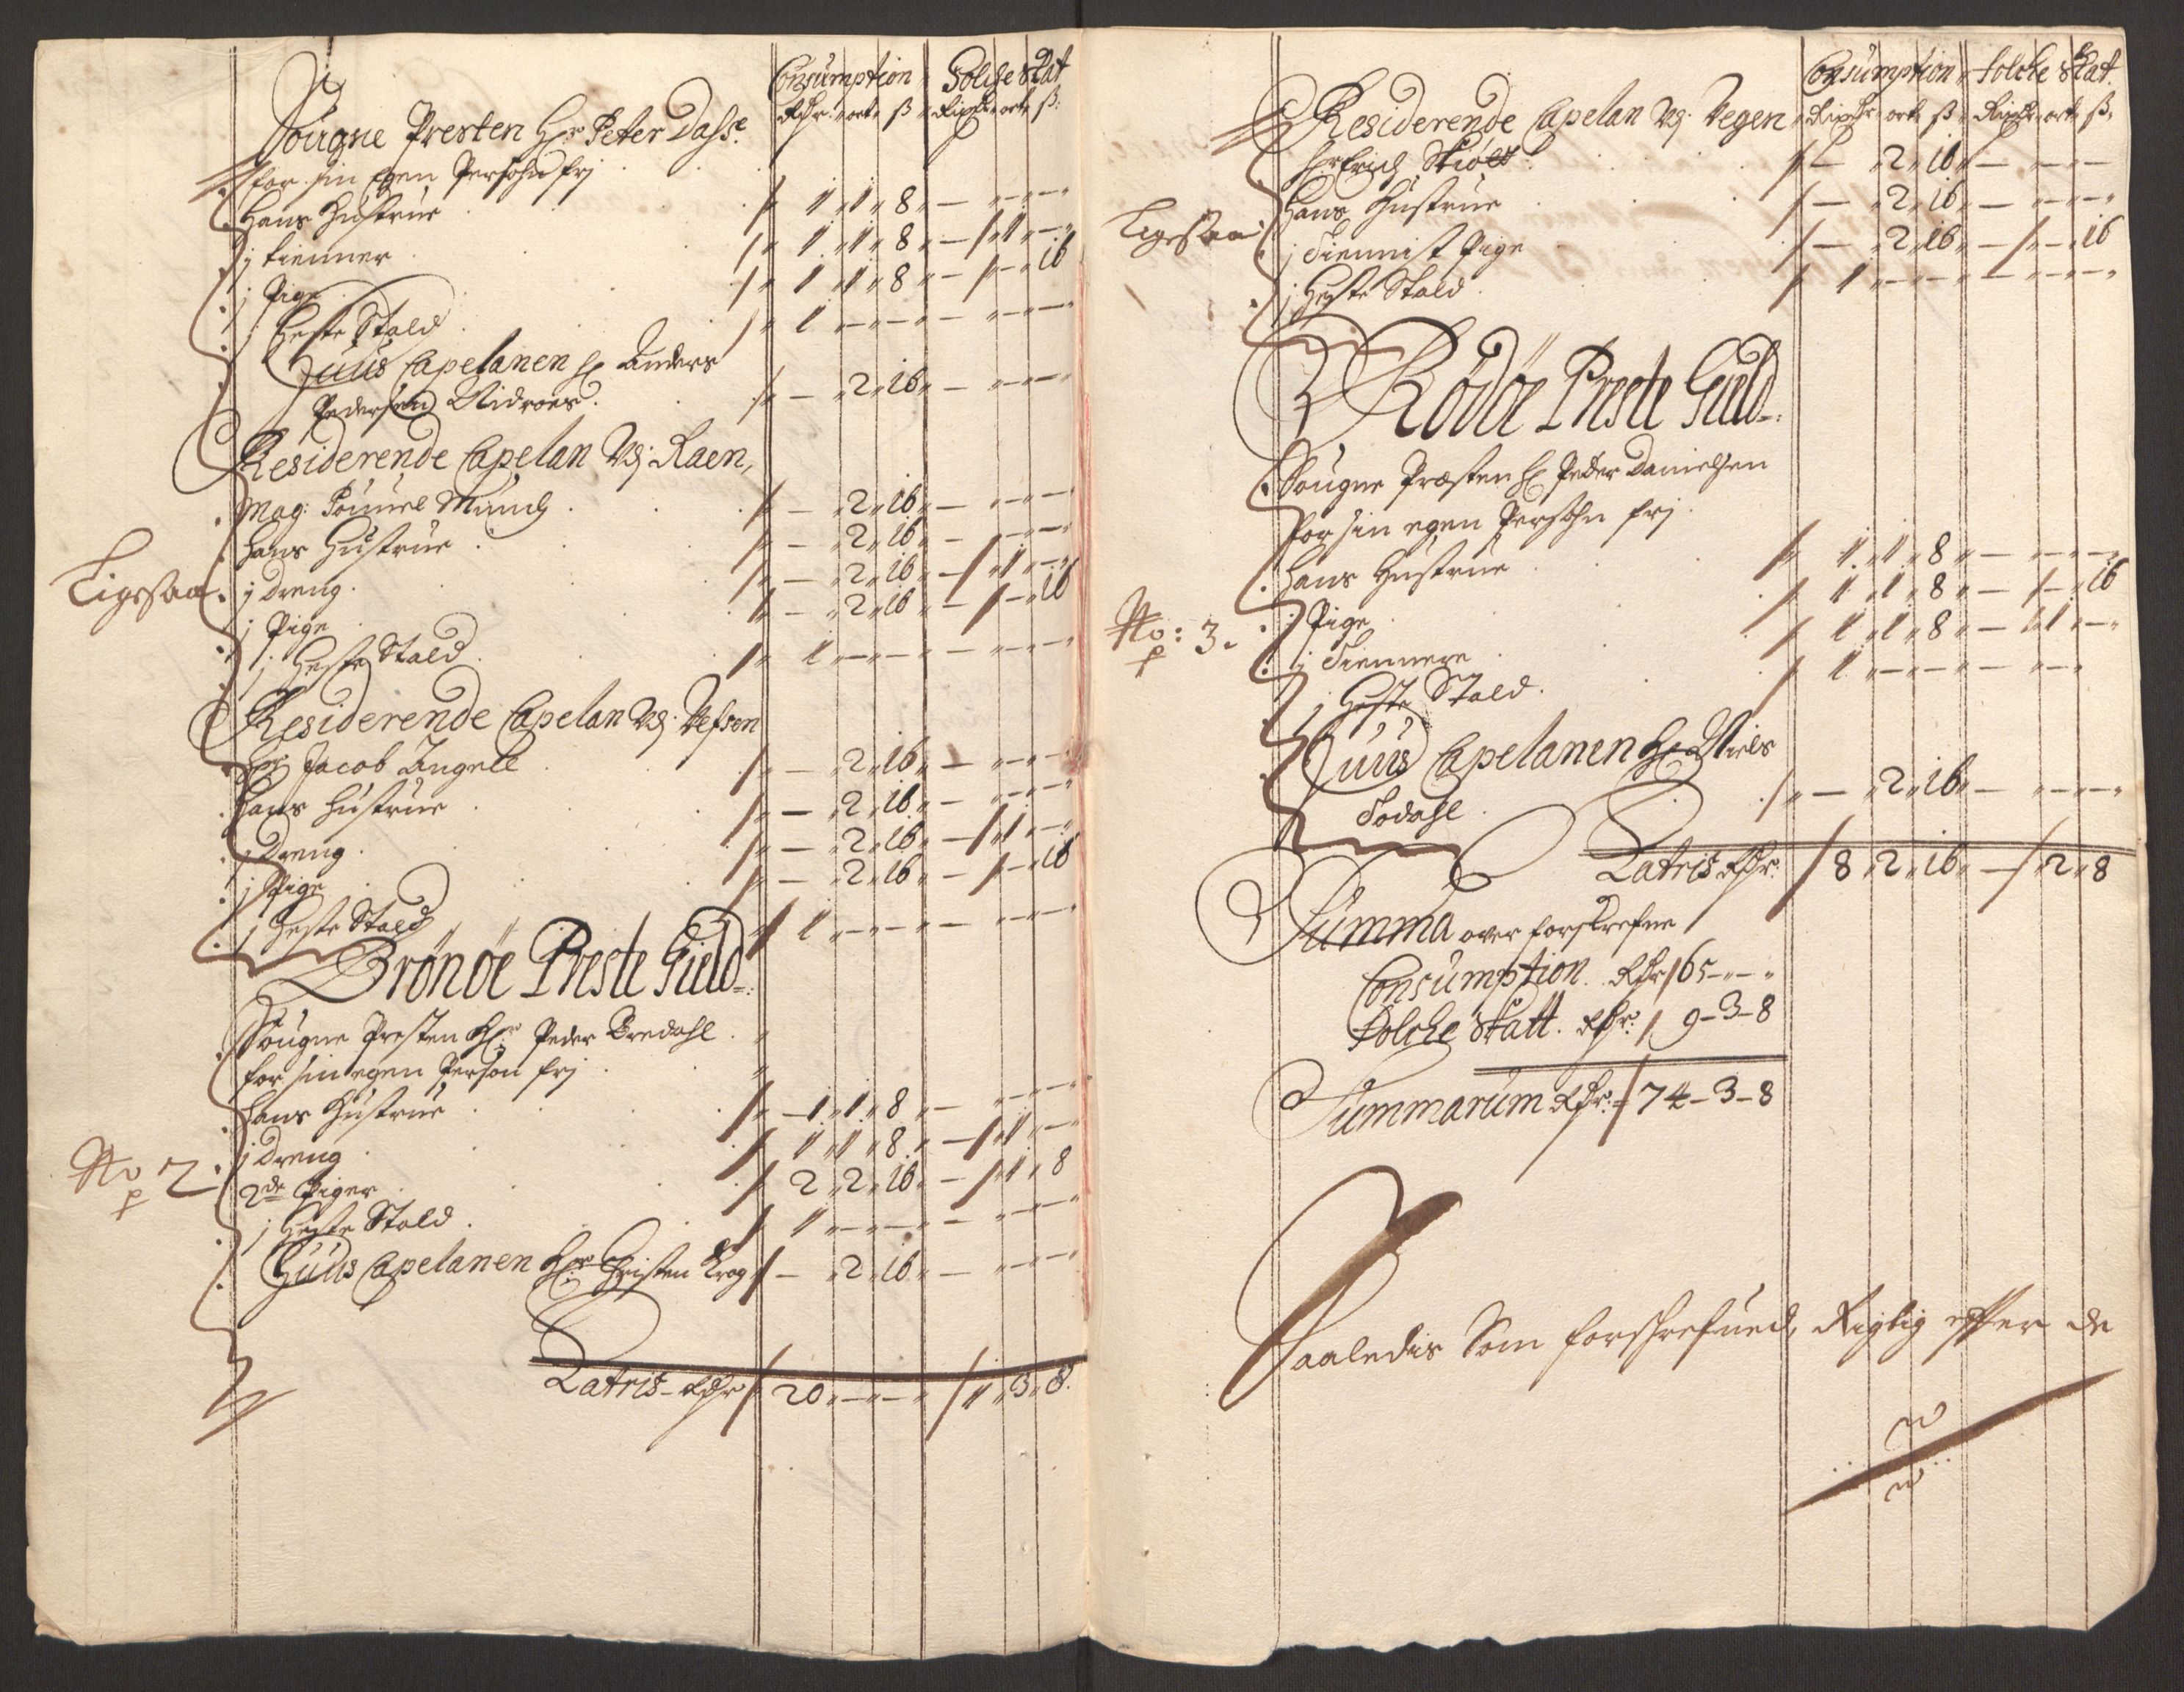 Consumption Folche Skat
Rdr ort ß Rixdr ort ß
Sougne Presten Hr Peter Dass
for sin egen Persohn frj
hans Hustrue 1 1 8 — — —
j tienner 1 1 8 — 1 —
j Pige 1 1 8 — — 16
j Heste Stald 1 — — — — —
Huus Capelanen Hr Anders
Pedersen Nidroes — 2 16 — — —
Residerende Capelan Vdj Raen,
Mag: Munch — 2 16 — — —
hans Hustrue — 2 16 — — —
Ligesaa j dreng — 2 16 — 1 —
j Pige — 2 16 — — 16
j Heste Stald 1 — — — — —
Residerende Capelan Vdj Vefsen
Hr Jacob Angell — 2 16 — — —
hans Hustrue — 2 16 — — —
j dreng — 2 16 — 1 —
j Pige — 2 16 — — 16
j Heste Stald 1 — — — — —
Brönöe Preste Gield
Sougne Presten Hr Peder Bredahl
for sin egen Person frj
hans Hustrue 1 1 8 — — —
j dreng 1 1 8 — 1 —
No 2 2de Piger 2 2 16 — 1 8
j Heste Stald 1 — — — — —
Huus Capelanen Hr Christen Krog — 2 16 — — —
Latris Rdr 20 — — 1 3 8
Consumption Folche Skat
Rixdr ort ß Rixdr ort ß
Residerende Capelan Vdj Vegen
Hr Erich — 2 16 — — —
hans Hustrue — 2 16 — — —
Ligesaa j Tiennist Pige — 2 16 — — 16
j Heste Stald 1 — — — — —
Rödöe Preste Gield
Sougne Præsten Hr Peder Danielsen
for sin egen Persohn frj
hans Hustrue 1 1 8 — — —
No: 3. j Pige 1 1 8 — — 16
j Tiennere 1 1 8 — 1 —
j Heste Stald 1 — — — — —
Huus Capelanen Hr Niels
Todahl — 2 16 — — —
Latris Rdr 8 2 16 — 2 8
Summa over forskrefne
Consumption Rdr 65 — —
Folche Skatt. Rdr: 9 – 3 – 8
Summarum Rdr: 74 – 3 – 8
Saaledis Som forskrefued, Rigtig efter de